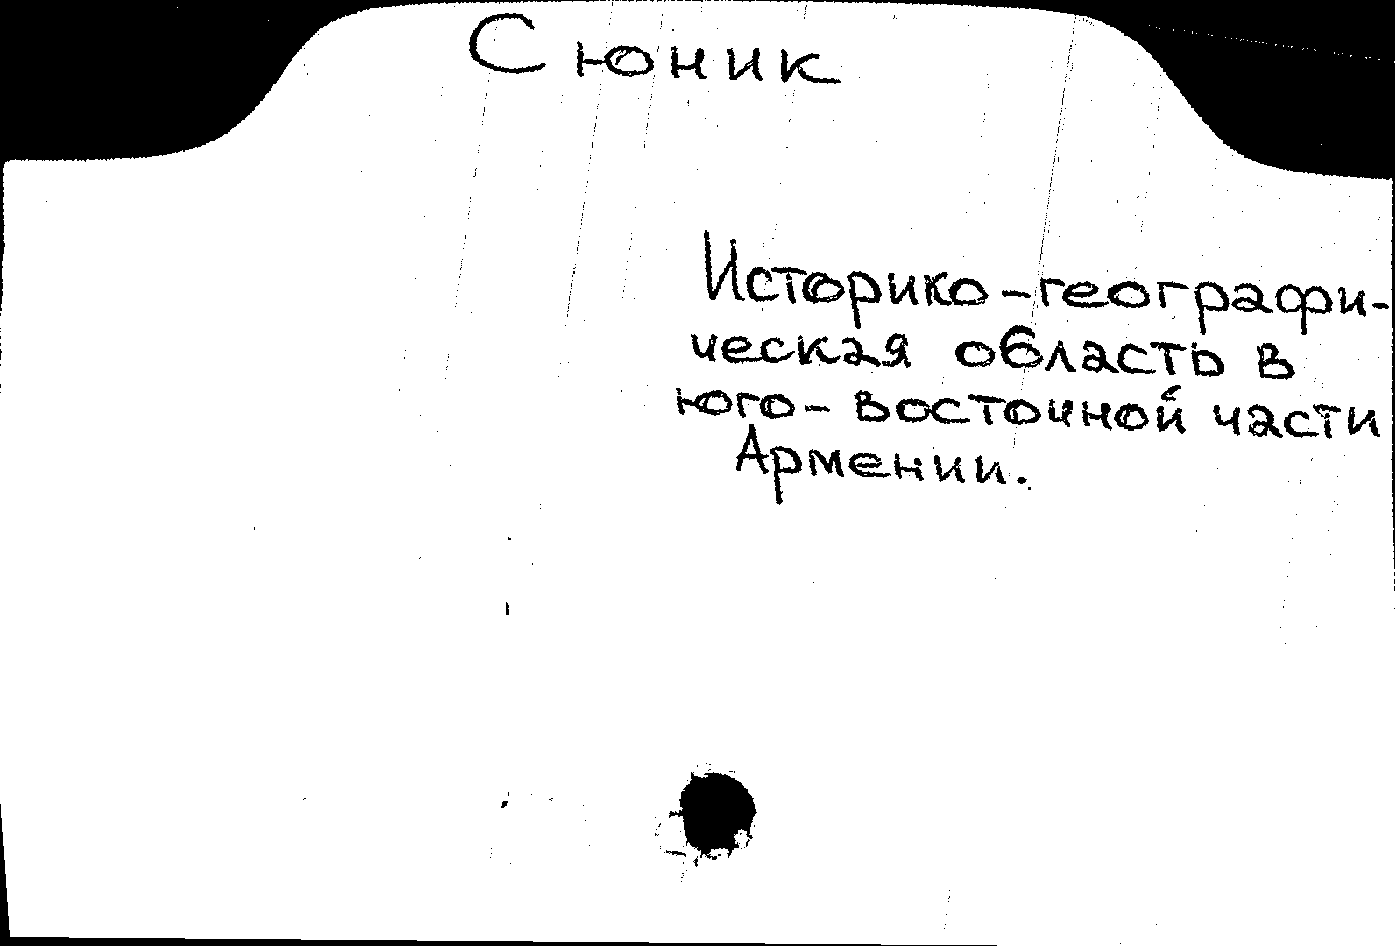 Сюник
Историко-географи-
ческая область в
юго-восточной части
Армении.